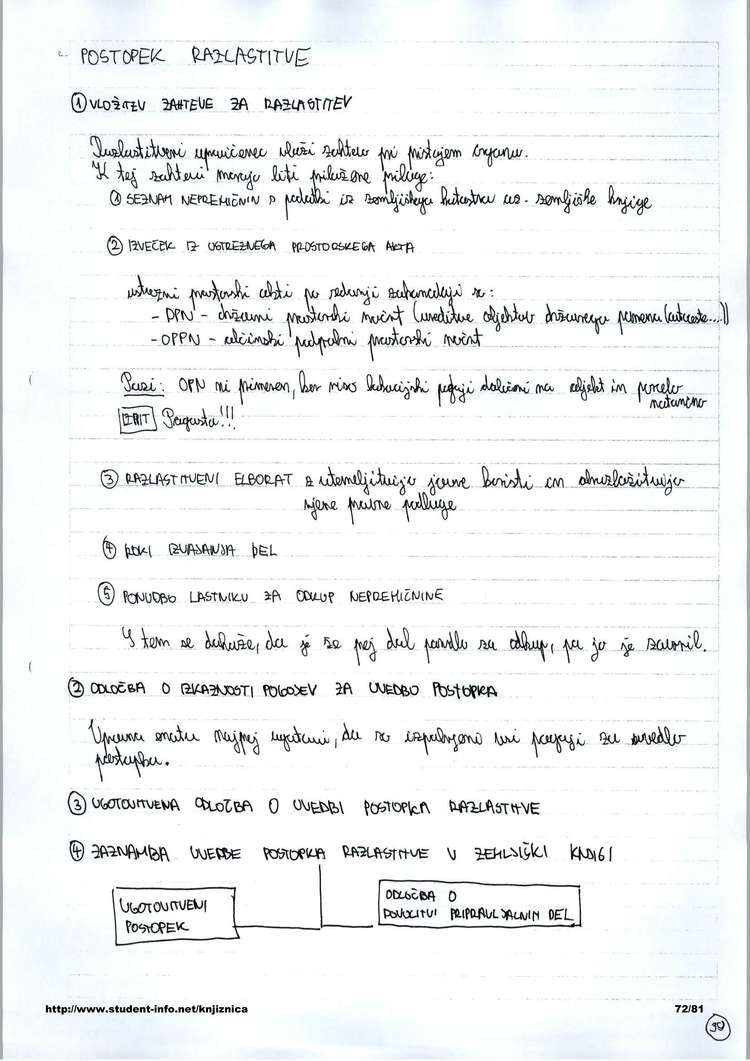 POSTOPEK RAZLASTITVE
① VLOŽITEV ZAHTEVE ZA RAZLASTITEV
Razlastitveni upravičenec vloži zahtevo pri pristojem organu.
K tej zahtevi morajo biti priložene priloge:
① SEZNAM NEPREMIČNIN s podatki iz zemljiškega katastra oz. zemljiške knjige
② IZVEČEK IZ USTREZNEGA PROSTORSKEGA AKTA
ustrezni prostorski akti po sedanji zakonodaji so:
- DPN - državni prostorski načrt (ureditve objektov državnega pomena (avtoceste....))
- OPPN - občinski podrobni prostorski načrt
Pazi: OPN ni primeren, ker niso lokacijski pogoji določeni na objekt in parcelo
natančno
IZPIT Pogosto!!!
③ RAZLASTITVENI ELBORAT z utemeljitvijo javne koristi in obrazložitvijo
njene pravne podlage
④ ROKI IZVAJANJA DEL
⑤ PONUDBO LASTNIKU ZA ODKUP NEPREMIČNINE
S tem se dokaže, da je že prej dal ponudbo za odkup, pa jo je zavrnil.
② ODLOČBA O IZKAZNOSTI POGOJEV ZA UVEDBO POSTOPKA
Upravna enota najprej ugotovi, da so izpolnjeni vsi pogoji za uvedbo
postopka.
③ UGOTOVITVENA ODLOČBA O UVEDBI POSTOPKA RAZLASTITVE
④ ZAZNAMBA UVEDBE POSTOPKA RAZLASTITVE V ZEMLJIŠKI KNJIGI
UGOTOVITVENI
POSTOPEK
ODLOČBA O
DOVOLITVI PRIPRAVLJALNIH DEL
http://www.student-info.net/knjiznica
72/81